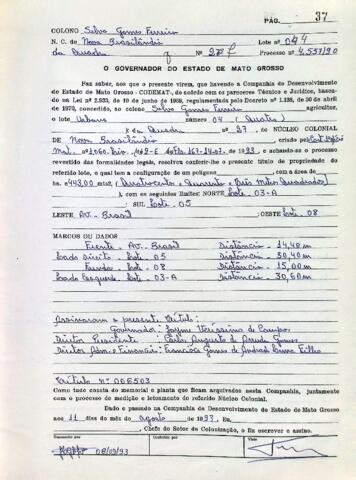 PÁG. 37
COLONO Selvo Gomes Ferreira
N. C. de Nova Brasilândia Lote nº 04
da Quadra Nº 27 Processo nº 4.557/90
O GOVERNADOR DO ESTADO DE MATO GROSSO
Faz saber, aos que o presente título virem, que havendo a Companhia de Desenvolvimento
do Estado de Mato Grosso - CODEMAT-, de acôrdo com os pareceres Técnico e Jurídico, baseados
na Lei nº 2.933, de 10 de junho de 1969, regulamentada pelo Decreto nº 1.138, de 30 de abril
de 1970, concedido, ao colono Selvo Gomes Ferreira agricultor,
o lote Urbano número 04 (Quatro)
da Quadra nº 27, do NÚCLEO COLONIAL
de Nova Brasilândia criado pela
Mat. nº 1060 1993, e achando-se o processo
revestido das formalidades legais, resolveu conferir-lhe o presente título de propriedade do
referido lote, o qual tem a configuração de um polígono com a área de
443,00 mts² (Quatrocentos e Quarenta e Três Metros Quadrados)
), com os seguintes limites: NORTE Lote 03-A
SUL Lote 05
LESTE Av. Brasil OESTE Lote 08
MARCOS OU DADOS
Frente - Av. Brasil Distância - 14,40 m
Lado Direito - Lote 05 Distância - 30,40 m
Fundos - Lote 08 Distância - 15,00 m
Lado Esquerdo - Lote 03-A Distância - 30,60 m
Assinaram o presente Título:
Governador: Jayme Veríssimo de Campos
Diretor Presidente: Carlos Augusto de Arruda Gomes
Diretor Adm. e Financeiro: Francisco Gomes de Andrade Lima Filho
Título nº 006503
Como tudo consta do memorial e planta que ficam arquivados nesta Companhia, juntamente
com o processo de medição e loteamento do referido Núcleo Colonial.
Dado e passado na Companhia de Desenvolvimento do Estado de Mato Grosso
aos 11 dias do mês de agosto de 1993. Eu,
, Chefe do Setor da Colonização, o fiz escrever e assino.
08/09/93
Visto